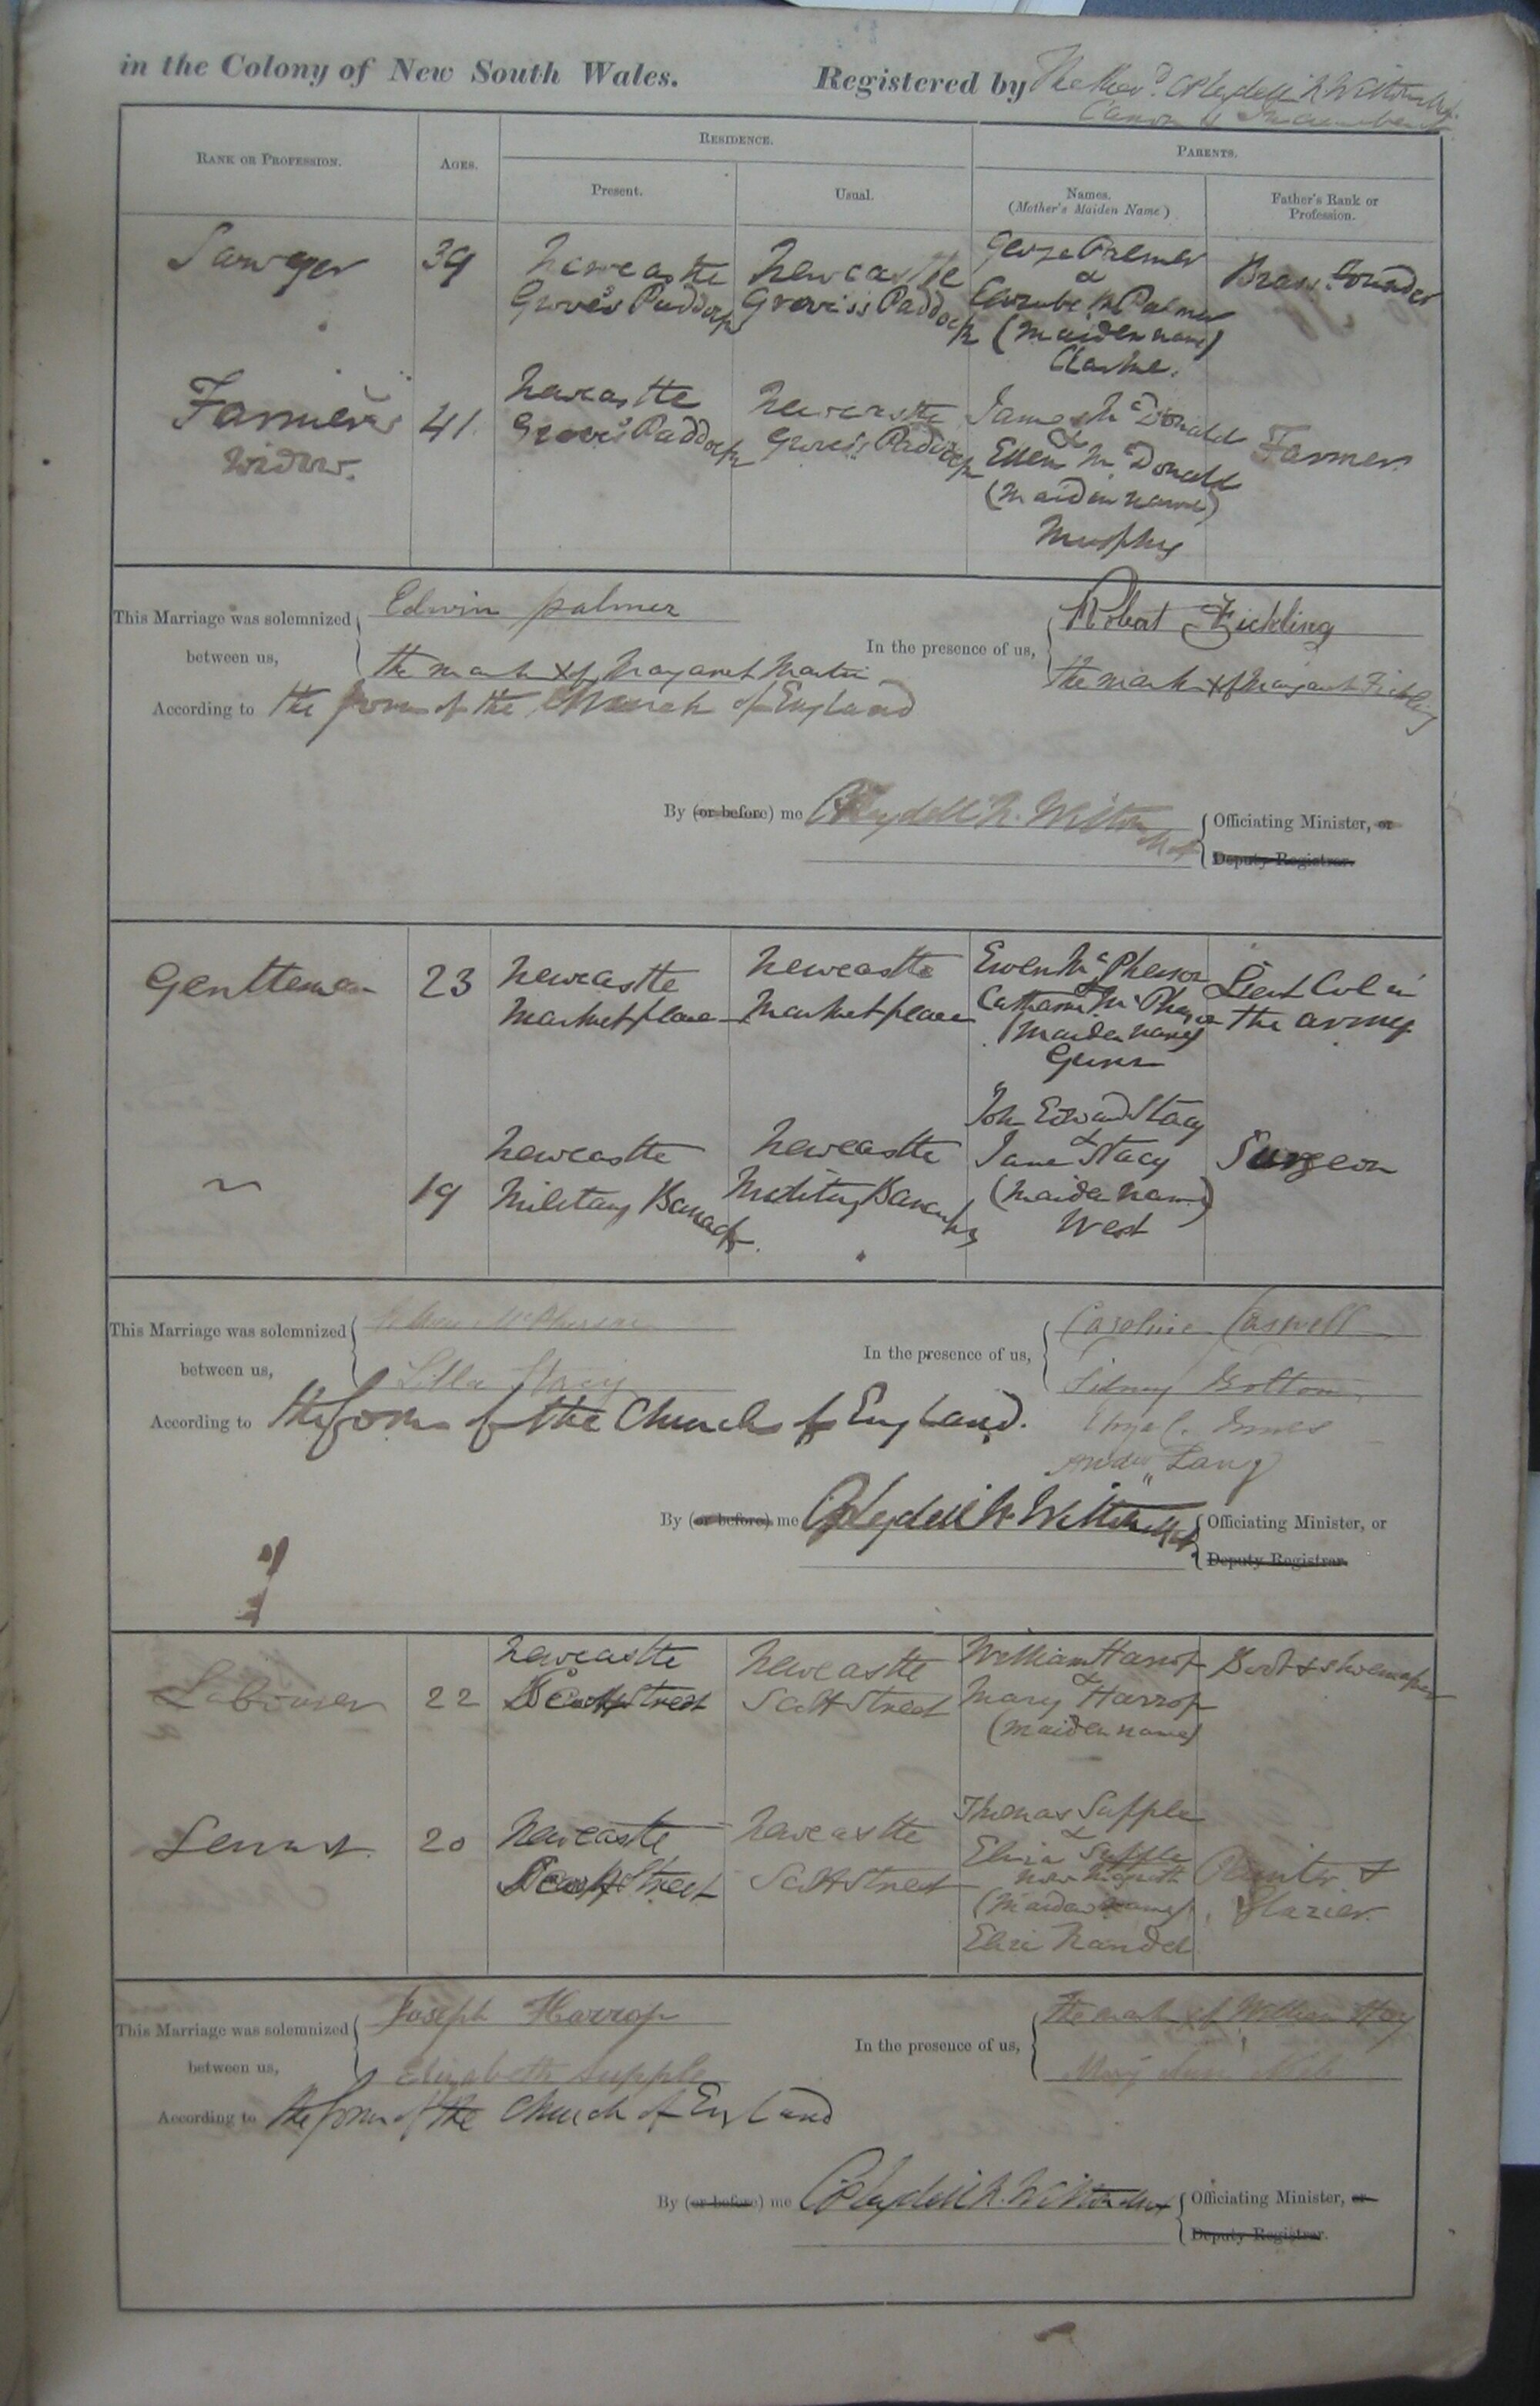 in the Colony of New South Wales. Registered by The Revd. C Pleydell N Wilton M.A.
Canon & Incumbent
RANK OR PROFESSION.
AGES.
RESIDENCE.
Present.
Usual.
PARENTS.
Names.
(Mother's Maiden Name)
Father's Rank or
Profession.
Sawyer
39
Newcastle
Groves Paddock
Newcastle
Groves's Paddock
George Palmer
&
Palmer
(Maiden name)
Clarke.
Brass founder
Farmer's
Widow.
41.
Newcastle
Groves Paddock
Newcastle
Groves's Paddock
James McDonald
&
Ellen McDonald
(Maiden name)
Murphy
Farmer.
This Marriage was solemnized
between us,
Edwin palmer
the mark X of Margaret Martin
In the presence of us,
Robert Fickling
The mark X of Margaret Fickling
According to the form of the Church of England
By (or before) me C Pleydell N. Wilton M.A.
Officiating Minister, or
Deputy Registrar.
Gentleman
23
Newcastle
Market place
Newcastle
Market place
Ewen McPherson
&
Catharine McPherson
(Maiden name)
Gunn
Lieut Col in
the army
~
19
Newcastle
Military Barracks.
Newcastle
Military Barracks
John Edward Stacy
&
Jane Stacy
(Maiden name)
West
Surgeon
This Marriage was solemnized
between us,
McPherson
Stacy
In the presence of us,
Caroline Caswell
Sidney
Innes
Lang
According to the form of the Church of England.
By (or before) me C Pleydell N Wilton M.A.
Officiating Minister, or
Deputy Registrar.
Labourer
22
Newcastle
Scott Street
Newcastle
Scott Street
William Harrop
&
Mary Harrop
(Maiden name)
Boot & shoemaker
Servant.
20
Newcastle
Scott Street
Newcastle
Scott Street
Thomas Supple
&
Eliza Supple
now
(Maiden name)
Eliza
Painter &
Glazier.
This Marriage was solemnized
between us,
Joseph Harrop
Elizabeth Supple
In the presence of us,
The mark X of William
Mary Ann
According to the form of the Church of England
By (or before) me C Pleydell N. Wilton M.A.
Officiating Minister, or
Deputy Registrar.